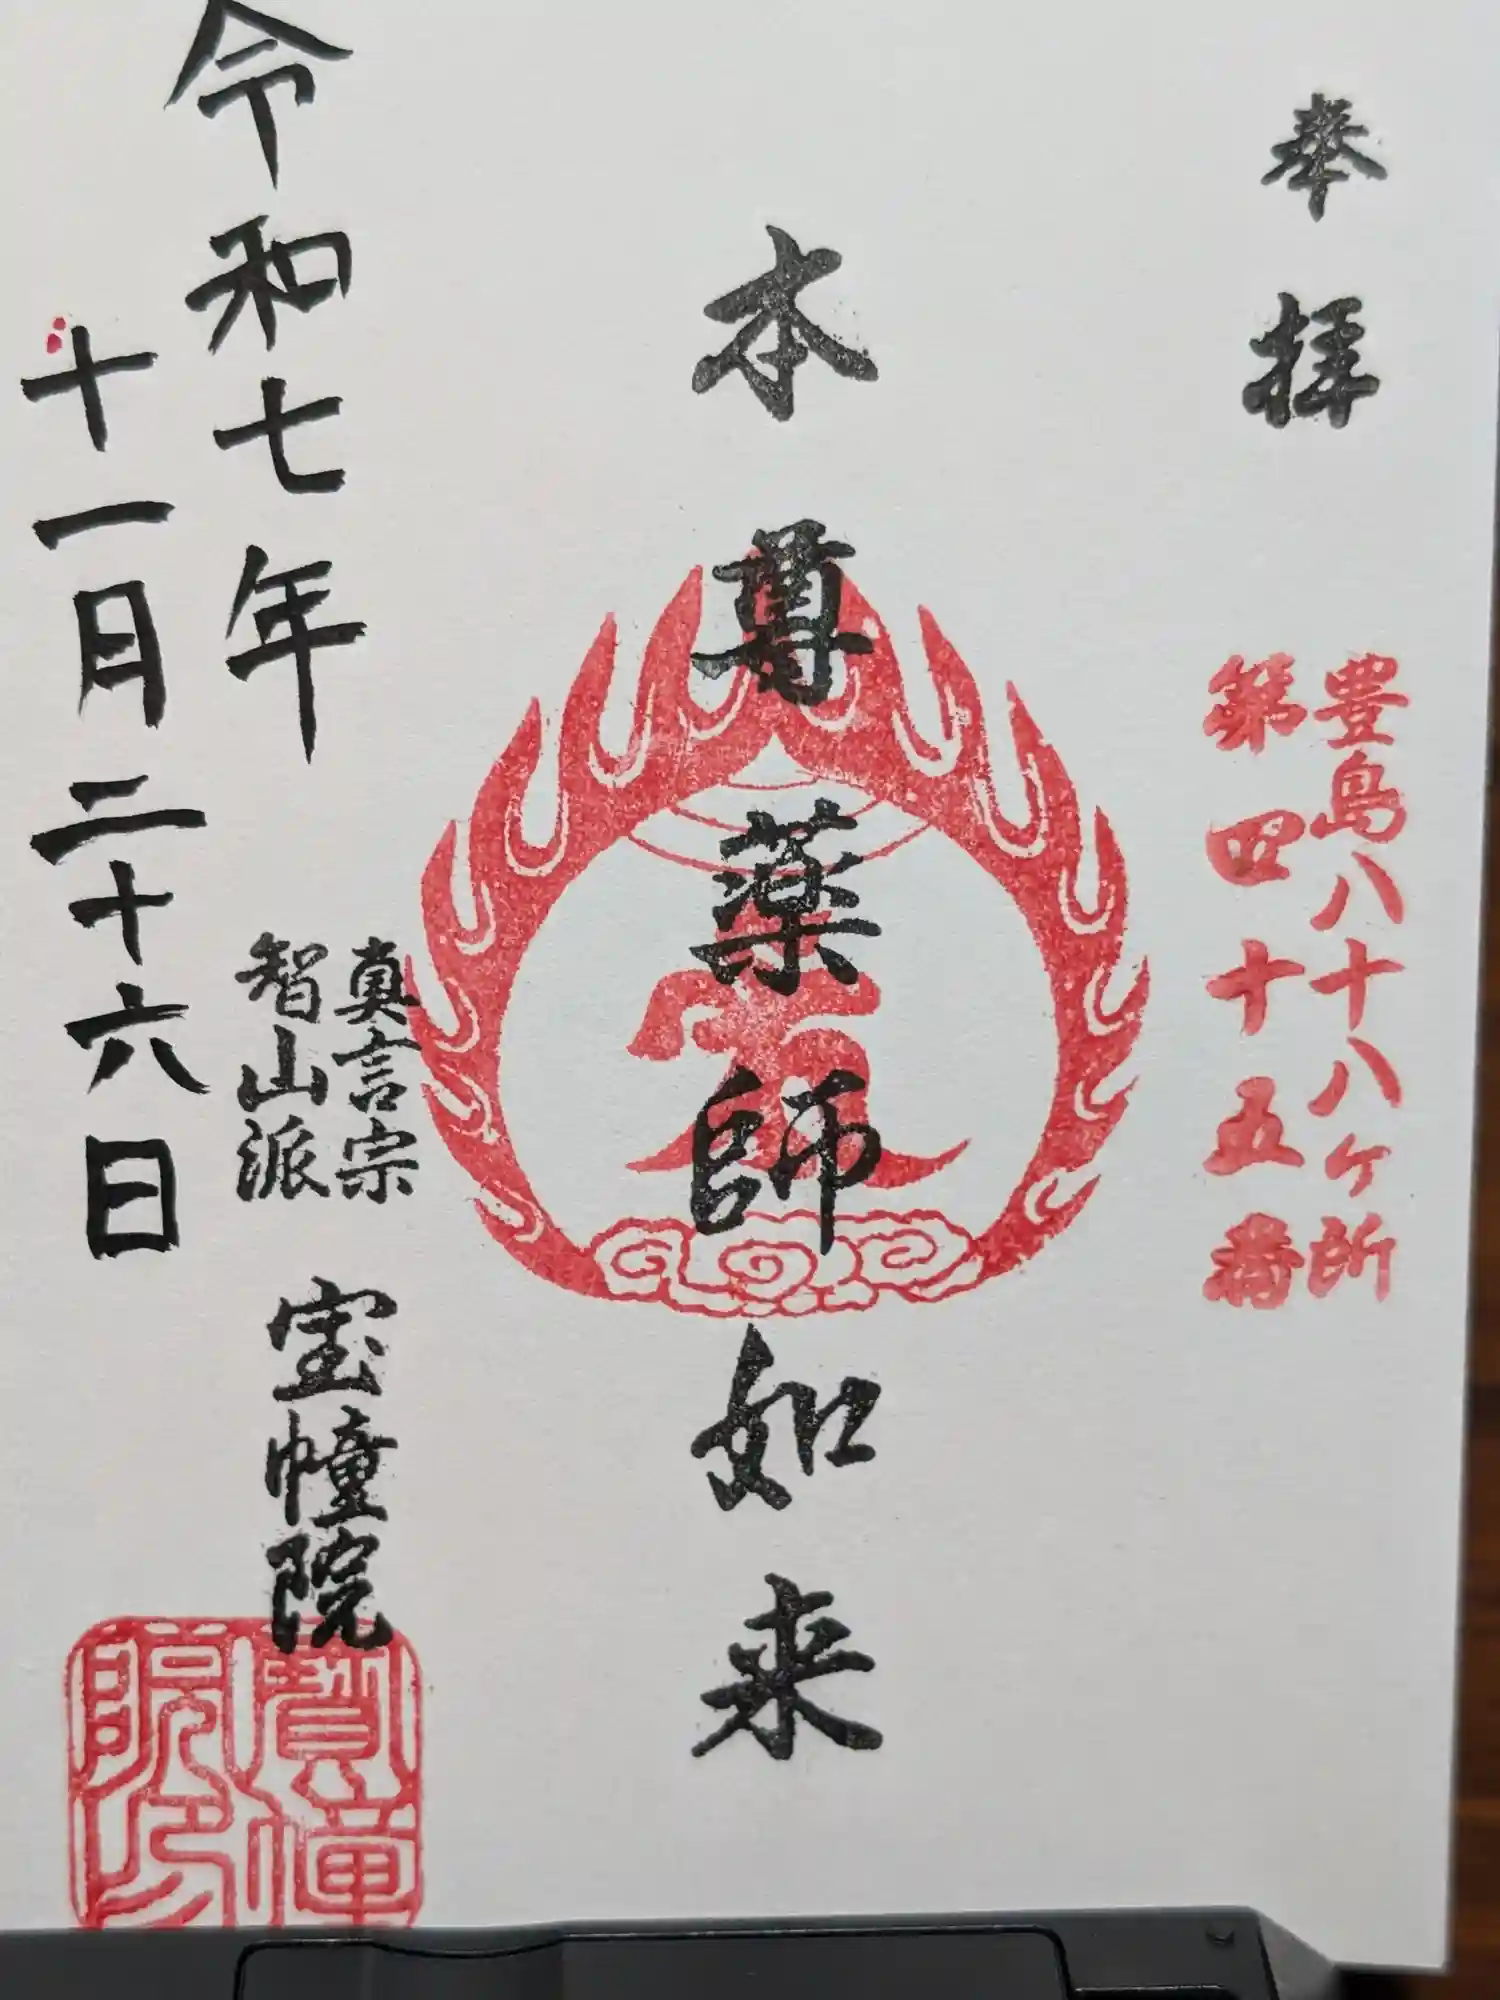 奉拝
豊島八十八ヶ所
第四十五番
本尊薬師如来
令和七年
十一月二十六日
真言宗
智山派
宝幢院
寳幢
院印